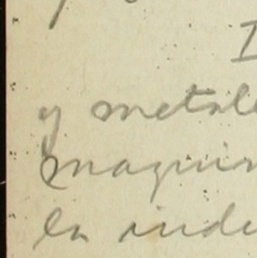 I
y metale
maquin
la indu